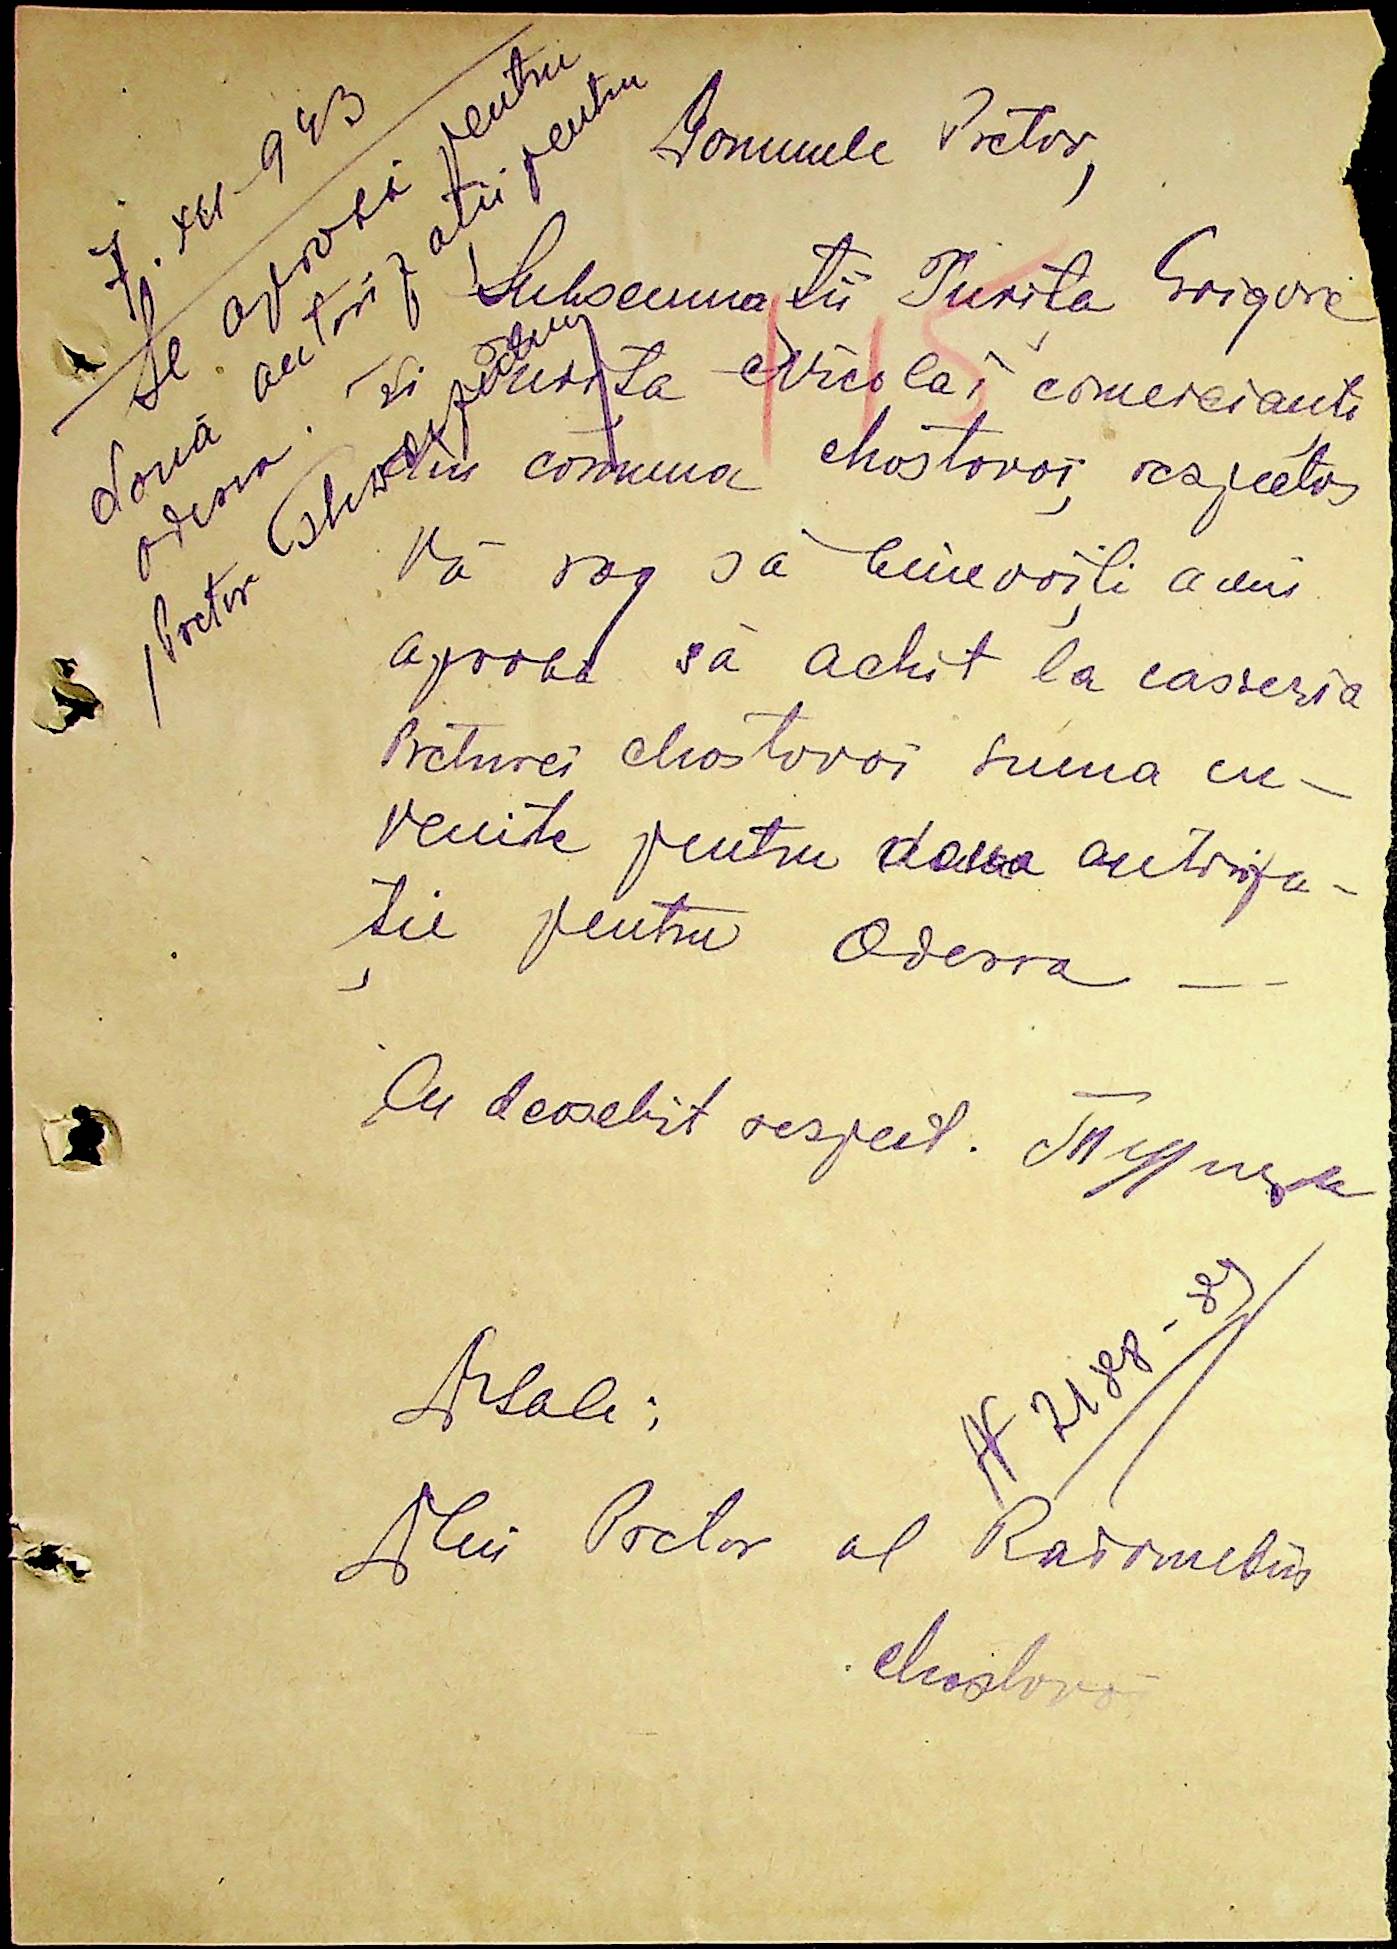 7. XII-943
Se aprobă pentru
două autorizații pentru
Odessa.
Pretor
Domnule Pretor,
Subsemnatii Turița Grigore
și Turița Nicolai comercianti
din comuna Mostovoi, respectos
Vă rog să binevoiți a-mi
aproba să achit la casseria
Preturei Mostovoi suma cu-
venite pentru doua autoriza-
ție pentru Odessa —
115
Cu deosebit respect.
N 2188-89
D-Sale;
D-lui Pretor al Raionului
Mostovoi